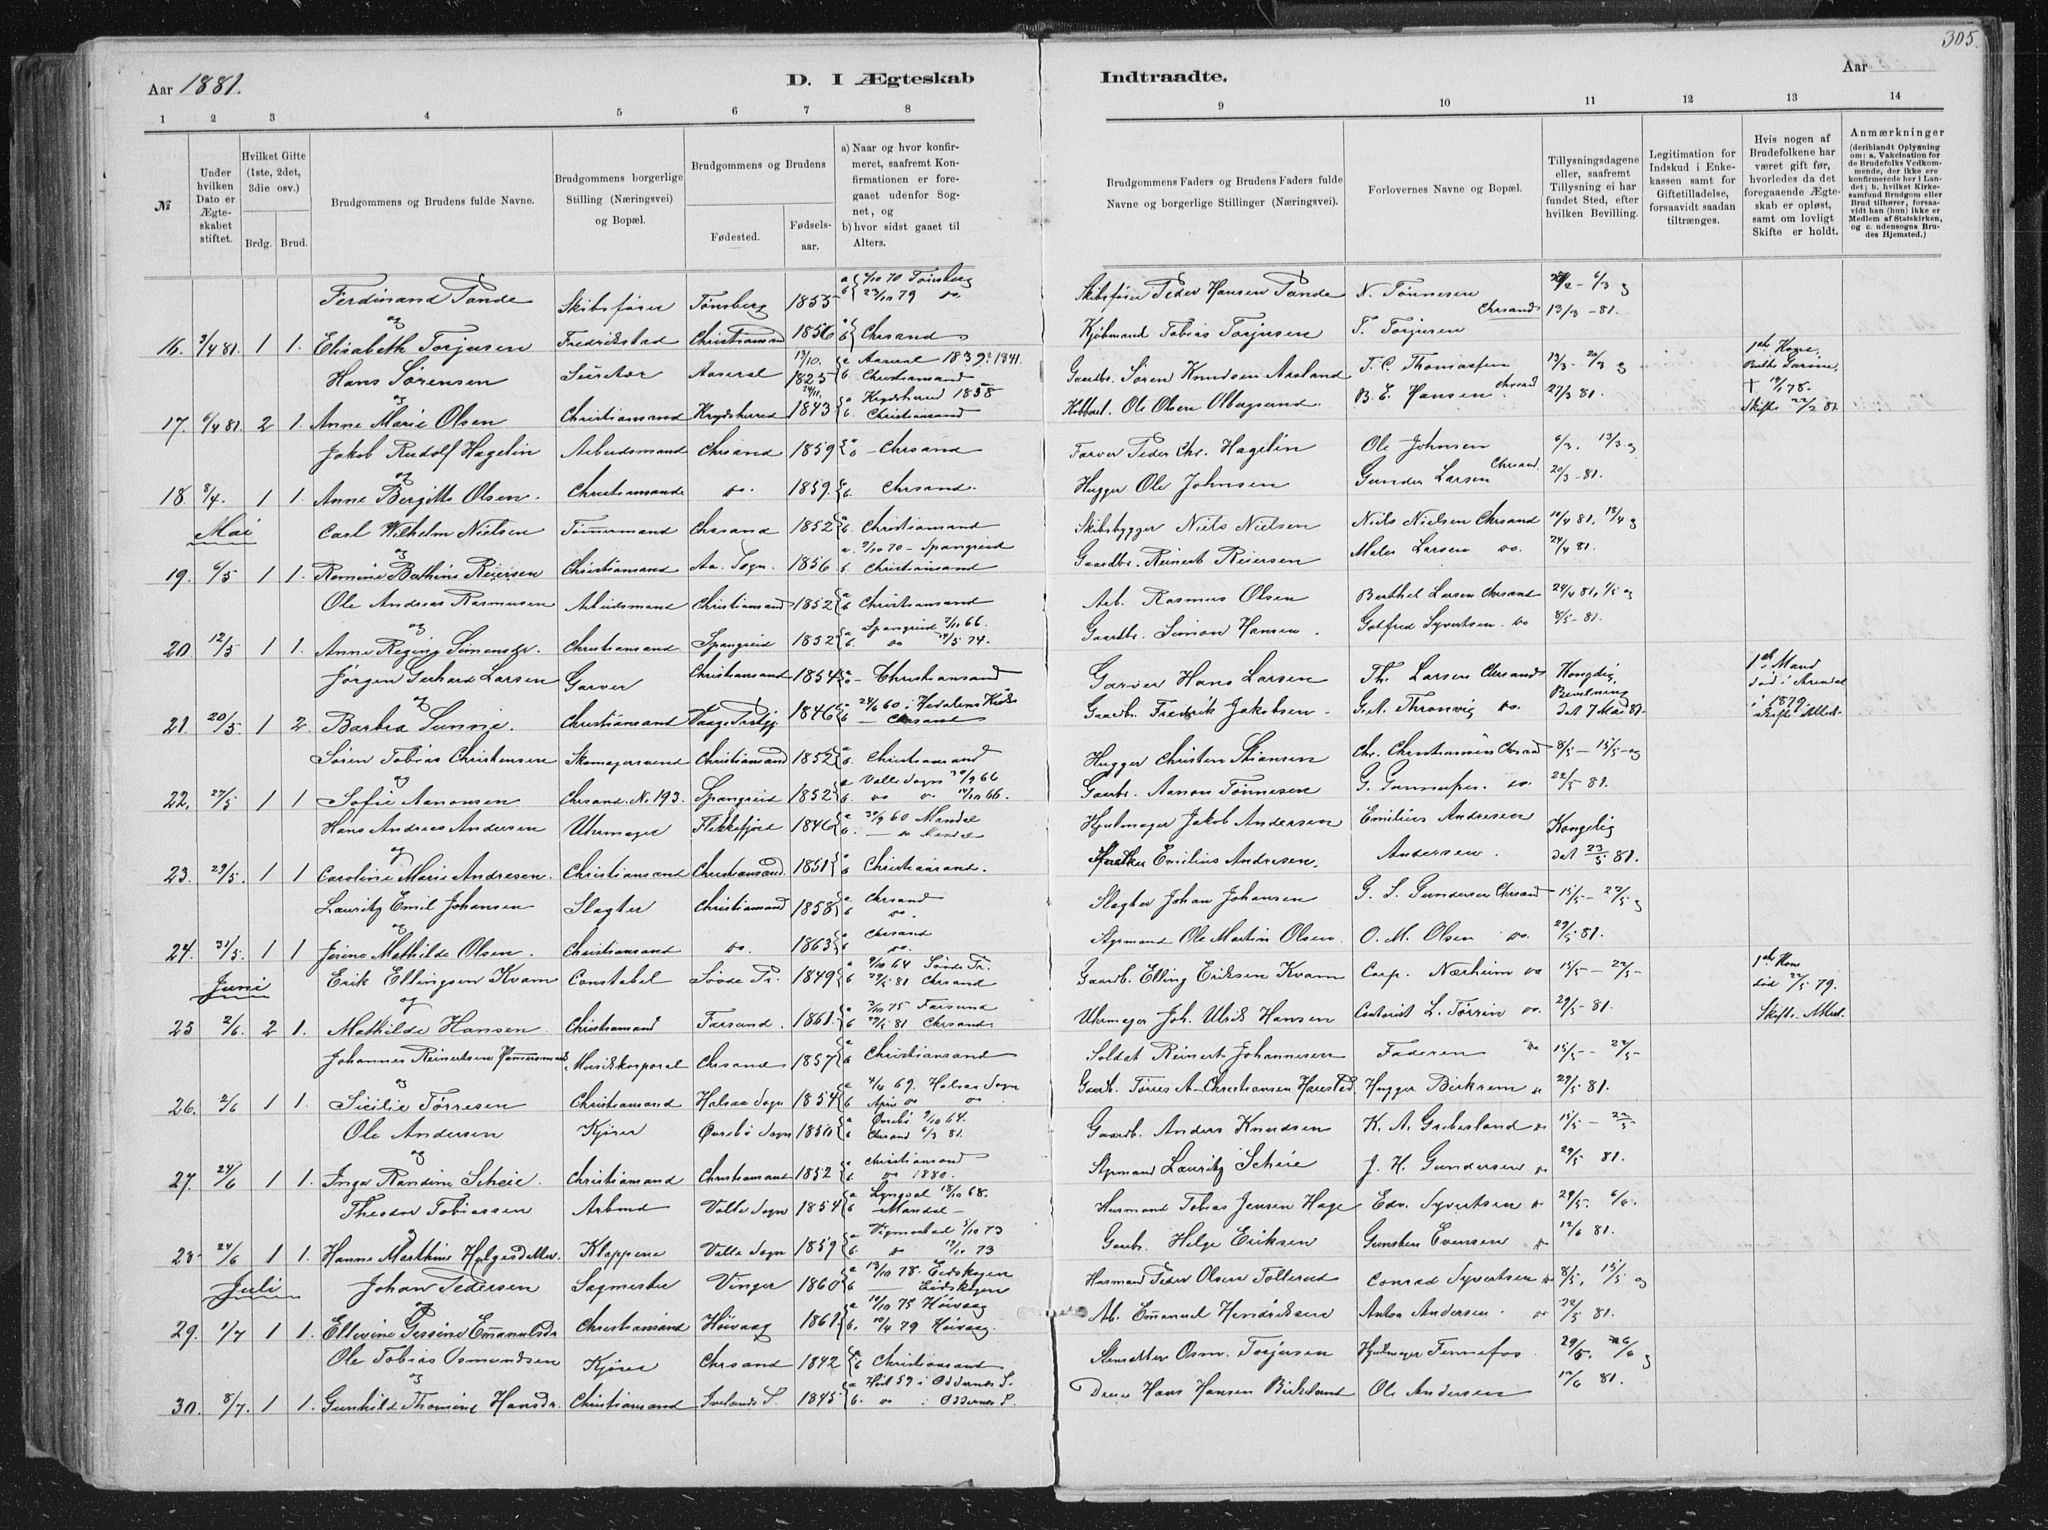 305.
Aar 1881.
D. I Ægteskab Indtraadte.
Aar
1 2 3 4 5 6 7 8 9 10 11 12 13 14
№
Under hvilken Dato er Ægteskabet stiftet.
Hvilket Gifte (1ste, 2det, 3die osv.)
Brdg. Brud.
Brudgommens og Brudens fulde Navne.
Brudgommens borgerlige Stilling (Næringsvei) og Bopæl.
Brudgommens og Brudens
Fødested. Fødselsaar.
a) Naar og hvor konfirmeret, saafremt Konfirmationen er foregaaet udenfor Sognet, og
b) hvor sidst gaaet til Alters.
Brudgommens Faders og Brudens Faders fulde Navne og borgerlige Stillinger (Næringsvei).
Forlovernes Navne og Bopæl.
Tillysningsdagene eller, saafremt Tillysning ei har fundet Sted, efter hvilken Bevilling.
Legitimation for Indskud i Enkekassen samt for Giftetilladelse, forsaavidt saadan tiltrænges.
Hvis nogen af Brudefolkene har været gift før, hvorledes da det foregaaende Ægteskab er opløst, samt om lovligt Skifte er holdt.
Anmærkninger (deriblandt Oplysning om: a. Vakcination for de Brudefolks Vedkommende, der ikke ere konfirmerede her i Landet; b. hvilket Kirkesamfund Brudgom eller Brud tilhører, forsaavidt han (hun) ikke er Medlem af Statskirken, og c. udensogns Brudes Hjemsted.)
Ferdinand Tande Skibsfører Tønsberg 1853 a 70 Tønsberg b 79 do. Skibsfører Peder Hansen Tande N. Tønnesen 6/3 og
og
16. 3/4 81. 1 1. Elisabeth Torjusen Fredrikstad Christiansand 1856 Chrsand Kjøbmand Tobias Torjusen T. Torjusen Chrsand 13/3 - 81.
Hans Sørensen Aaseral 1825 a Aaseral 1839 1841. b. Christiansand Gaardbr. Sören Knudsen Aasland T. C. Thomassen 13/3 - 20/3 og
og
17. 6/4 81. 2 1. Anne Marie Olsen Christiansand Krydsherred 1843 a Krydsherred 1858 b. Christiansand Ole Olsen B. E. Hansen Chrsand 27/3 81. Skifte 22/2 81
Jakob Rudolf Hagelin Arbeidsmand Chrsand 1859 Chrsand Farver Peder Chr. Hagelin Ole Johnsen 6/3. 13/3 og
og
18 8/4. 1 1. Anne Bergitte Olsen. Christiansand do. 1859. Chrsand. Hugger Ole Johnsen Gunder Larsen Chrsand 20/3 - 81.
Mai
Carl Wilhelm Nielsen Tømmermand Chrsand 1852 Christiansand Skibsbygger Niels Nielsen Niels Nielsen Chrsand 10/4 81, 18/4 og
og
19. 6/5 1 1. Remine Bathine Reiersen Christiansand Aa. Sogn. 1856 a. 70 - Spangreid b Christiansand Gaardbr. Reinert Reiersen Larsen do. 24/4 81.
Ole Andreas Rasmusen Arbeidsmand Christiansand 1852 Christiansand Arb. Rasmus Olsen Berthel Larsen Chrsand 24/4 81, 1/5 og
og
20 12/5 1 1. Anne Regine Simonsdr. Christiansand Spangreid 1852 a Spangreid 66. b do 74. Gaardbr. Simon Hansen. Gotfred Syvertsen. do 8/5 - 81.
Jørgen Gerhard Larsen Garver Christiansand 1854 Christiansand Garver Hans Larsen Th. Larsen Chrsand Kongelig Bevilning 1ste Mand død i Arendal
og
21. 20/5 1 2. Barbra Sunnie. Christiansand 1846 60 i Hedalens Kirke Chrsand Gaardbr. Fredrik Jakobsen G. A. Thronvig do. dat 7 Mai 81. i 1879. Skifte Attest
Søren Tobias Christensen Skomagersvend Christiansand 1852 Christiansand Hugger Christen Chr. Christiansen Chrsand 8/5 - 15/5 - og
og
22. 27/5 1 1 Sofie Aanonsen Chrsand. No 193. Spangreid 1852 a Valle Sogn 66 b. do do 66. Gaardbr. Aanon Tønnesen G. do. 22/5 81.
Hans Andreas Andersen Uhrmager Flekkefjord 1846 a 60 Mandal b. Mandal Hjulmager Jakob Andersen Emilius Andresen Kongelig
og
23. 29/5. 1 1 Caroline Marie Andresen. Christiansand Christiansand 1851 Christiansand. Emilius Andresen. Andersen. dat 23/5 81.
Lauritz Emil Johansen Slagter Christiansand 1858 a Chrsand b do. Slagter Johan Johansen G. S. Gundersen Chrsand 15/5 - 22/5 og
og
24. 31/5. 1 1 Jesine Mathilde Olsen. Christiansand do. 1863 a Chrsand b do. Styrmand Ole Martin Olsen. O. M. Olsen do. 29/5 81.
Juni
Erik Ellingsen Kvam Constabel Sövde Pr. 1849 a 64 Sövde Pr. b 81 Chrsand Gaardb. Elling Eriksen Kvam Corp. Nærheim do 15/5 - 22/5 - 1ste Kone død 22/5 79.
og
25 2/6. 2 1. Mathilde Hansen. Christiansand Farsund. 1861 a 75 Farsund b 81 Chrsand. Uhrmager Joh. Ulrik Hansen Contorist L. Tørrin do. 29/5 - 81. Skifte Attest.
Johannes Reinertsen Musikkorporal Chrsand 1857 Christiansand Soldat Reinert Johannesen Faderen do 15/5 - 22/5 -
og
26. 2/6 1 1. Sicilie Tørresen Christiansand Halsaa Sogn 1854 a 69. Halsaa Sogn b do do Gaardb. Tørres A. Christiansen Harestad, Hugger Birkrem do 29/5 81.
Ole Andersen Kjører Øvrebø Sogn 1850 a Øvrebø 64. b Chrsand 6/3 81. Gaardb. Anders Knudsen K. A. Grebesland do 15/5 - 22/5
og
27. 24/6 1 1. Inga Randine Scheie. Christiansand Christiansand 1852 a Christiansand b. do 1880. Styrmand Lauritz Scheie J. H. Gundersen do 29/5 81.
Theodor Tobiassen Arbmd Valle Sogn 1854 a Lyngdal 18/10 68. b - Mandal - Husmand Tobias Jensen Hage Edv. Syvertsen do 29/5. 6/6.
og
28 24/6 1 1. Hanne Marthine Helgesdatter. Klappene Valle Sogn 1859 73 b do 73 Gaardbr. Helge Eriksen Gunsten Evensen do 12/6 81.
Juli
Johan Pedersen Sagmester Vinger 1860 a 13/10 78. Eidskogen b Eidskogen Husmand Peder Olsen Tollerud Conrad Syvertsen do 8/5, 15/5 og
og
29. 1/7 1 1. Ellevine Gessine Emanuelsdr Christiansand Höivaag 1861 a 10/10 75 Höivaag b. 79 Höivaag. Ab. Emanuel Hendriksen Anton Andersen. do 22/5 81.
Ole Tobias Osmundsen Kjører Chrsand 1842 Christiansand Osm. Torjusen Hjulmager Tennefos 29/5. 6/6 og
og
30. 8/7. 1 1. Gunhild Thomine Hansdr. Christiansand Ivelands S. 1845 a Höst 59 i Oddernes S. b. do i Oddernes S. Hans Hansen Birkeland Ole Andersen 12/6 81.